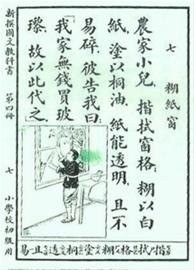 七　糊紙窗
農家小兒。揩拭窗格。糊以白
紙。塗以桐油。紙能透明。且不
易碎。彼告我曰。
「我家無錢買玻
璨。故以此代之」
揩 拭 格 糊 塗 桐 透 且 易
新撰國文教科書　第四冊　七　小學校初級用